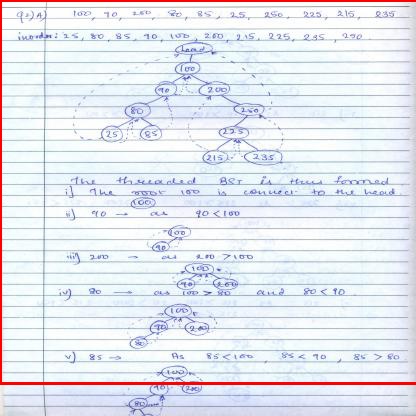 Q2) A) 100, 90, 200, 80, 85, 25, 250, 225, 215, 235
inorder: 25, 80, 85, 90, 100, 200, 215, 225, 235, 250.
head
100
90 200
80 250
25 85 225
215 235
The threaded BST is thus formed
i] The root 100 is connect to the head.
100
ii) 90 → as 90 < 100
100
90
iii) 200 → as 200 > 100
100
90 200
iv) 80 → as 100 > 80 and 80 < 90
100
90 200
80
v) 85 → As 85 < 100, 85 < 90, 85 > 80
100
90 200
80